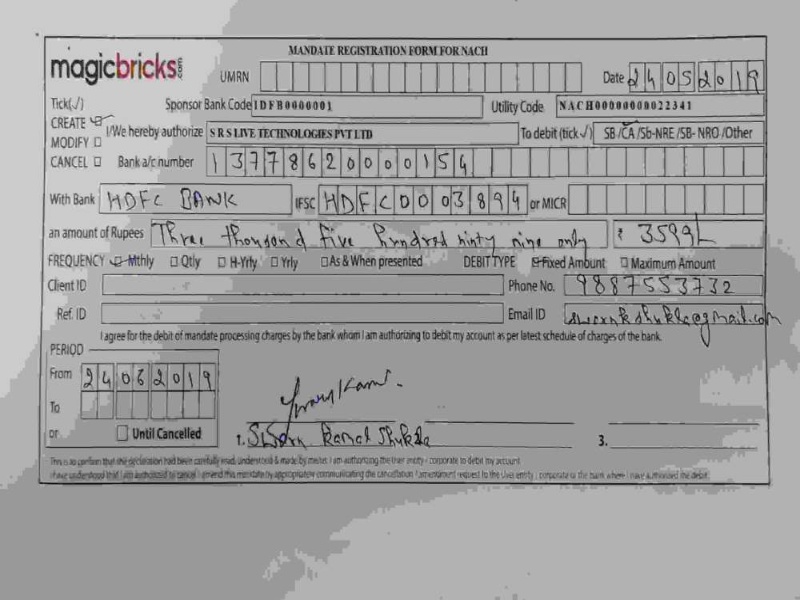 magicbricks.com
MANDATE REGISTRATION FORM FOR NACH
UMRN
Date 24052019
Tick(✓) Sponsor Bank Code IDFB0000001 Utility Code NACH00000000022341
CREATE I/We hereby authorize S R S LIVE TECHNOLOGIES PVT LTD To debit (tick ✓) SB /CA /Sb-NRE /SB- NRO /Other
MODIFY
CANCEL Bank a/c number 13778620000154
With Bank HDFC BANK IFSC HDFC0003894 or MICR
an amount of Rupees Three thousand five hundred ninty nine only ₹ 3599/-
FREQUENCY Mthly Qtly H-Yrly Yrly As & When presented DEBIT TYPE Fixed Amount Maximum Amount
Client ID Phone No. 9887553732
Ref. ID Email ID @gmail.com
I agree for the debit of mandate processing charges by the bank whom I am authorizing to debit my account as per latest schedule of charges of the bank.
PERIOD
From 24062019
To
or Until Cancelled 1. Kamal Shukla 3.
This is to confirm that the declaration had been carefully read, understood & made by me/we. I am authorizing the User entity / corporate to debit my account
I have understood that I am authorized to cancel / amend this mandate by appropriately communicating the cancellation / amendment request to the User entity / corporate or the bank where I have authorized the debit.